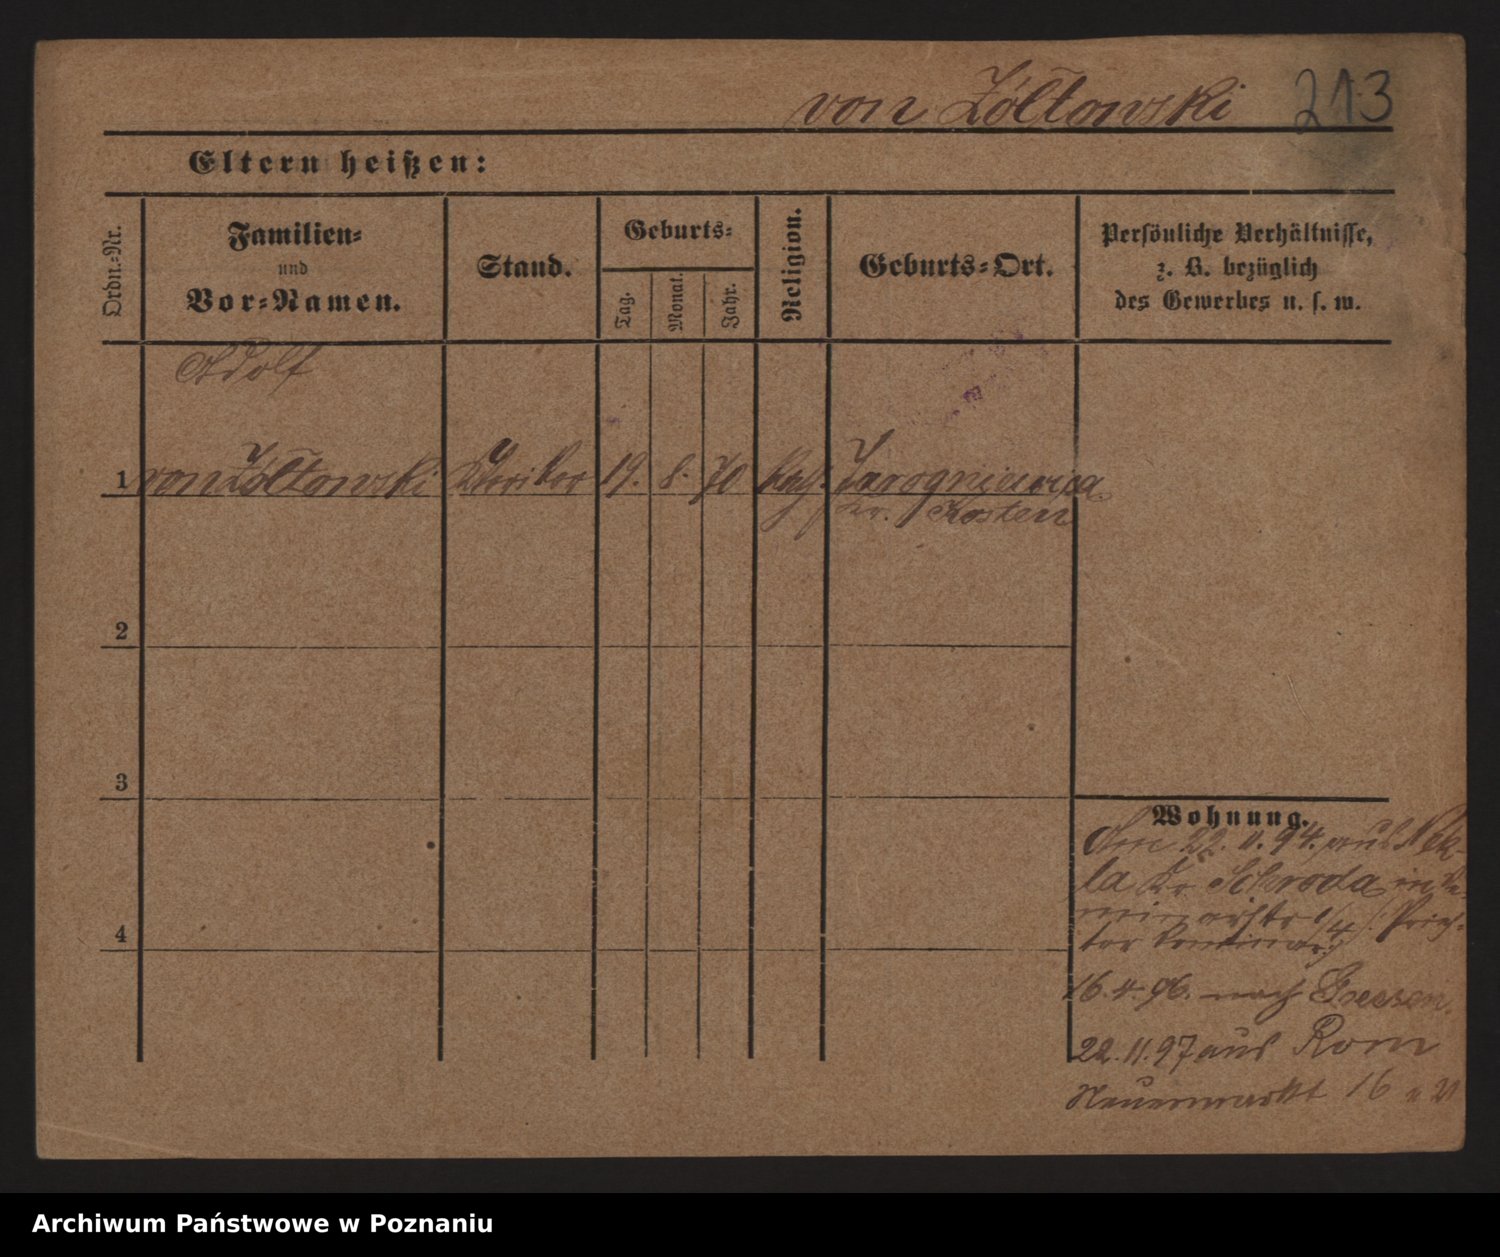 von Żółtowski 213
Eltern heißen:
Ordn.-Nr.
Familien-
und
Vor-Namen.
Stand.
Geburts-
Tag.
Monat.
Jahr.
Religion.
Geburts-Ort.
Persönliche Verhältnisse,
z. B. bezüglich
des Gewerbes u. s. w.
Adolf
1 von Żółtowski Kleriker 19. 8. 70 kath. Jarogniewice
Kr. Kosten
2
3
4
Wohnung.
Am 22. 11. 94. aus Nek-
la Kr Schroda in
16. 4. 96. nach Gnesen.
22. 11. 97 aus Rom
Neuermarkt 16
Archiwum Państwowe w Poznaniu